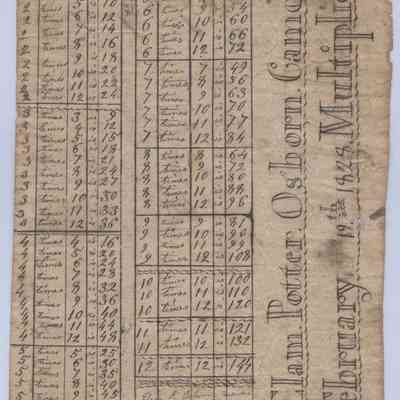 2 times 5 is 10
2 times 6 is 12
2 times 7 is 14
2 times 8 is 16
2 times 9 is 18
2 times 10 is 20
2 times 11 is 22
2 times 12 is 24
3 times 3 is 9
3 times 4 is 12
3 times 5 is 15
3 times 6 is 18
3 times 7 is 21
3 times 8 is 24
3 times 9 is 27
3 times 10 is 30
3 times 11 is 33
3 times 12 is 36
4 times 4 is 16
4 times 5 is 20
4 times 6 is 24
4 times 7 is 28
4 times 8 is 32
4 times 9 is 36
4 times 10 is 40
4 times 11 is 44
4 times 12 is 48
5 times 5 is 25
5 times 6 is 30
5 times 7 is 35
5 times 8 is 40
5 times 9 is 45
6 times 9 is 54
6 times 10 is 60
6 times 11 is 66
6 times 12 is 72
7 times 7 is 49
7 times 8 is 56
7 times 9 is 63
7 times 10 is 70
7 times 11 is 77
7 times 12 is 84
8 times 8 is 64
8 times 9 is 72
8 times 10 is 80
8 times 11 is 88
8 times 12 is 96
9 times 9 is 81
9 times 10 is 90
9 times 11 is 99
9 times 12 is 108
10 times 10 is 100
10 times 11 is 110
10 times 12 is 120
11 times 11 is 121
11 times 12 is 132
12 times 12 is 144
Potter Osborn
February 19th 1828 Multipl